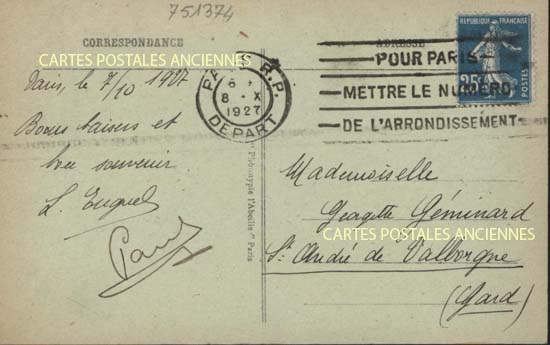 751374
CORRESPONDANCE
CARTES POSTALES ANCIENNES
Paris, le 7/10 1927
Bons baisers et
bon souvenir
L.
Paris
PARIS R.P.
8
8 - X
1927
DEPART
ADRESSE
REPUBLIQUE FRANÇAISE
25c
POUR PARIS
METTRE LE NUMERO
DE L'ARRONDISSEMENT
Phototypie l'Abeille" Paris
Mademoiselle
Georgette Géminard
CARTES POSTALES ANCIENNES
St André de Valborgne
(Gard)